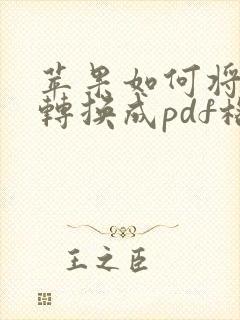 苹果如何将
轉換成pdf格
王之臣